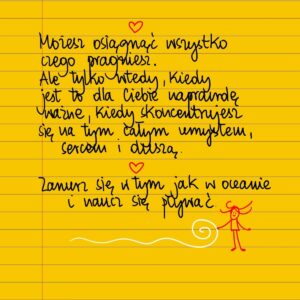 Możesz osiągnąć wszystko
czego pragniesz.
Ale tylko wtedy, kiedy
jest to dla Ciebie naprawdę
ważne, kiedy skoncentrujesz
się na tym całym umysłem,
sercem i duszą.
Zanurz się w tym jak w oceanie
i naucz się pływać.